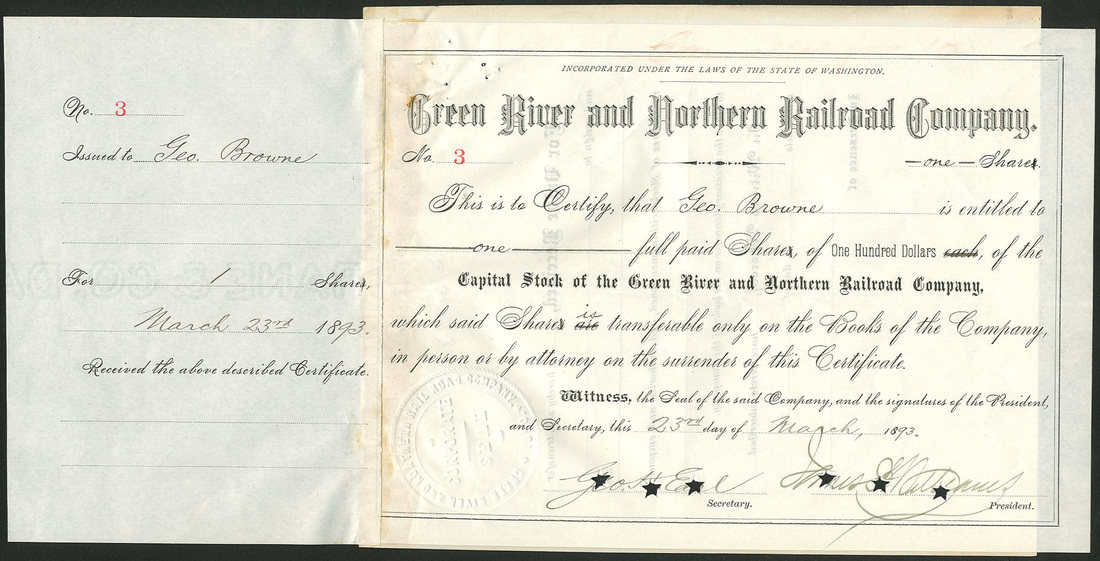 No. 3
Issued to Geo. Browne
For 1 Shares,
March 23rd 1893.
Received the above described Certificate.
INCORPORATED UNDER THE LAWS OF THE STATE OF WASHINGTON.
Green River and Northern Railroad Company.
No. 3 one Shares.
This is to Certify, that Geo. Browne is entitled to
one full paid Shares, of One Hundred Dollars each, of the
Capital Stock of the Green River and Northern Railroad Company,
is
which said Shares are transferable only on the Books of the Company,
in person or by attorney on the surrender of this Certificate.
Witness, the Seal of the said Company, and the signatures of the President,
and Secretary, this 23rd day of March, 1893.
Geo. H. Earl Williams
Secretary. President.
CORPORATE
SEAL